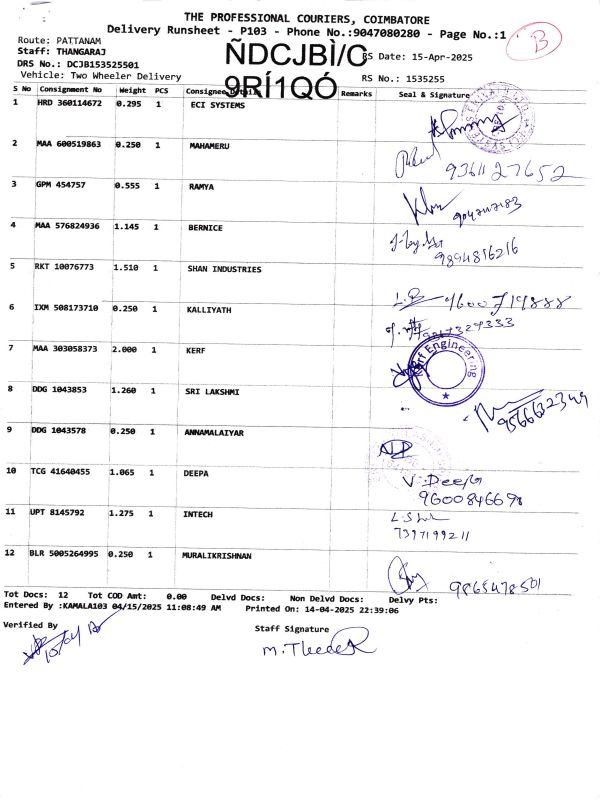 THE PROFESSIONAL COURIERS, COIMBATORE
Delivery Runsheet - P103 - Phone No.:9047080280 - Page No.:1
B
Route: PATTANAM
Staff: THANGARAJ
ÑDCJBÌ/C
9RÍ1QÓ
RS Date: 15-Apr-2025
DRS No.: DCJB153525501
Vehicle: Two Wheeler Delivery
RS No.: 1535255
S No Consignment No Weight PCS Consignee Details Remarks Seal & Signature
1 HRD 360114672 0.295 1 ECI SYSTEMS
2 MAA 600519863 0.250 1 MAHAMERU
9361127652
3 GPM 454757 0.555 1 RAMYA
4 MAA 576824936 1.145 1 BERNICE
9894816216
5 RKT 10076773 1.510 1 SHAN INDUSTRIES
9600719888
6 IXM 508173710 0.250 1 KALLIYATH
7 MAA 303058373 2.000 1 KERF
Kerf Engineering
8 DDG 1043853 1.260 1 SRI LAKSHMI
9566632349
9 DDG 1043578 0.250 1 ANNAMALAIYAR
10 TCG 41640455 1.065 1 DEEPA
V. Deepa
11 UPT 8145792 1.275 1 INTECH
7397199211
12 BLR 5005264995 0.250 1 MURALIKRISHNAN
9865478501
Tot Docs: 12 Tot COD Amt: 0.00 Delvd Docs: Non Delvd Docs: Delvy Pts:
Entered By :KAMALA103 04/15/2025 11:08:49 AM Printed On: 14-04-2025 22:39:06
Verified By
Staff Signature